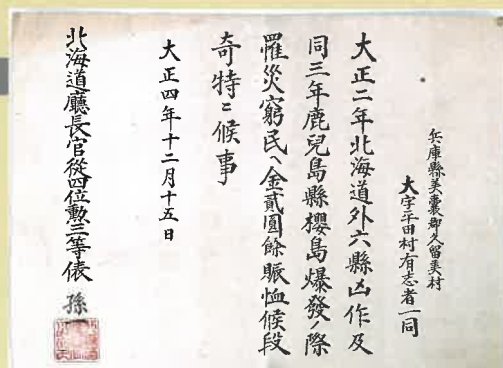 兵庫縣美嚢郡久留美村
大字平田村有志者一同
大正二年北海道外六縣凶作及
同三年鹿兒島縣櫻島爆發ノ際
罹災窮民ヘ金貳圓餘賑恤候段
奇特ニ候事
大正四年十二月十五日
北海道廳長官從四位勳三等俵孫